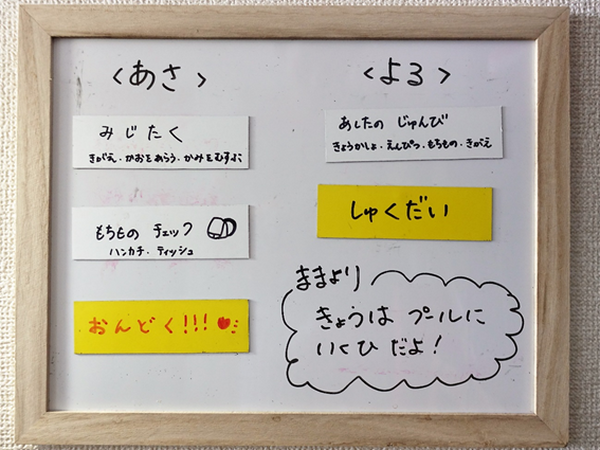 <あさ>
みじたく
きがえ・かおをあらう・かみをむすぶ
もちもの チェック
ハンカチ・ティッシュ
おんどく!!!
<よる>
あしたの じゅんび
きょうかしょ・えんぴつ・もちもの・きがえ
しゅくだい
ままより
きょうは プールに
いくひ だよ!